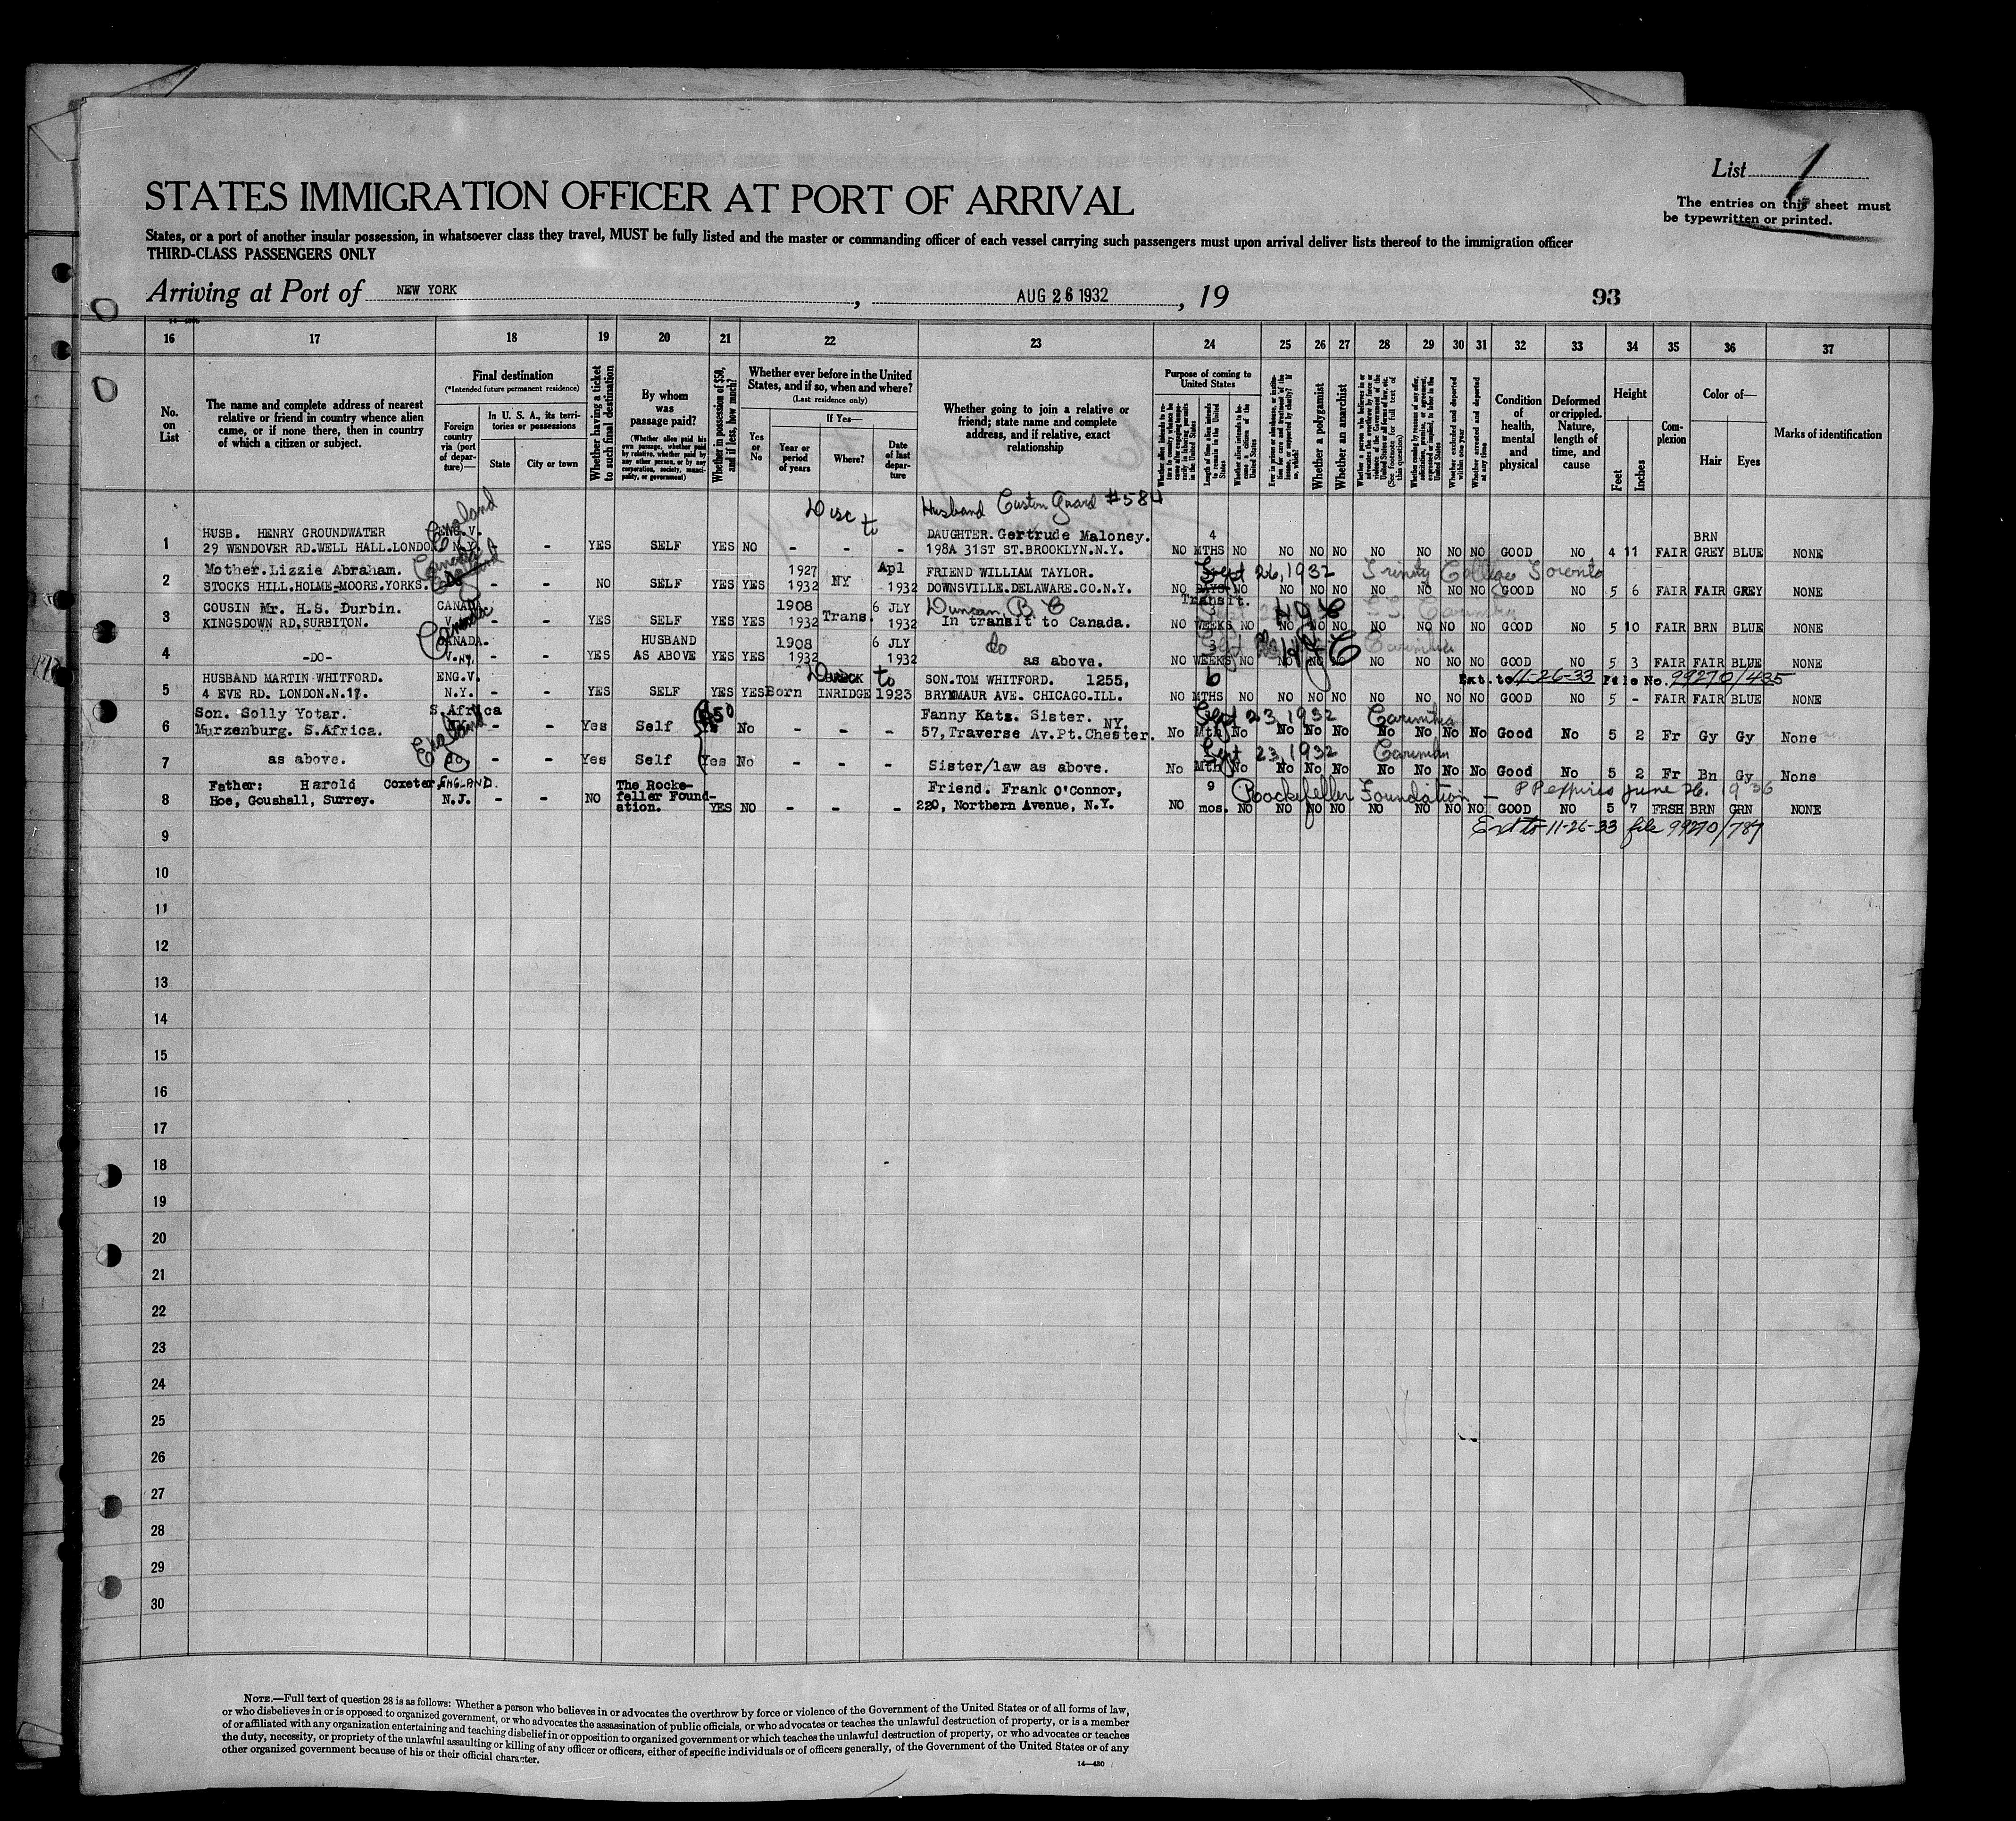 List 1
The entries on this sheet must
be typewritten or printed.
STATES IMMIGRATION OFFICER AT PORT OF ARRIVAL
States, or a port of another insular possession, in whatsoever class they travel, MUST be fully listed and the master or commanding officer of each vessel carrying such passengers must upon arrival deliver lists thereof to the immigration officer
THIRD-CLASS PASSENGERS ONLY
Arriving at Port of NEW YORK, AUG 26 1932, 19
93
16 17 18 19 20 21 22 23 24 25 26 27 28 29 30 31 32 33 34 35 36 37
No. on List
The name and complete address of nearest relative or friend in country whence alien came, or if none there, then in country of which a citizen or subject.
Final destination
(*Intended future permanent residence)
Foreign country via (port of departure)—
In U. S. A., its territories or possessions
State
City or town
Whether having a ticket to such final destination
By whom was passage paid?
(Whether alien paid his own passage, whether paid by relative, whether paid by any other person, or by any corporation, society, municipality, or government)
Whether in possession of $50, and if less, how much?
Whether ever before in the United States, and if so, when and where?
(Last residence only)
Yes or No
If Yes—
Year or period of years
Where?
Date of last departure
Whether going to join a relative or friend; state name and complete address, and if relative, exact relationship
Purpose of coming to United States
Length of time alien intends to remain in the United States
Whether alien intends to become a citizen of the United States
Whether a polygamist
Whether an anarchist
Whether excluded and deported within one year
Whether arrested and deported at any time
Condition of health, mental and physical
Deformed or crippled. Nature, length of time, and cause
Height
Feet
Inches
Complexion
Color of—
Hair
Eyes
Marks of identification
Disc to Husband Custon Guard #584
1 HUSB. HENRY GROUNDWATER ENG.V. England DAUGHTER.Gertrude Maloney. 4 BRN
29 WENDOVER RD.WELL HALL.LONDON N.Y. - - YES SELF YES NO - - - 198A 31ST ST.BROOKLYN.N.Y. NO MTHS NO NO NO NO NO NO NO NO GOOD NO 4 11 FAIR GREY BLUE NONE
2 Mother.Lizzie Abraham. Canada 1927 Apl FRIEND WILLIAM TAYLOR. Sept 26, 1932 Trinity College Toronto
STOCKS HILL.HOLME-MOORE.YORKS. - - NO SELF YES YES 1932 NY 1932 DOWNSVILLE.DELAWARE.CO.N.Y. NO DAYS NO NO NO NO NO NO NO NO GOOD NO 5 6 FAIR FAIR GREY NONE
3 COUSIN Mr. H.S. Durbin. CANADA 1908 6 JLY Duncan, B C Transit. 3
KINGSDOWN RD.SURBITON. - - YES SELF YES YES 1932 Trans. 1932 In transit to Canada. NO WEEKS NO NO NO NO NO NO NO NO GOOD NO 5 10 FAIR BRN BLUE NONE
4 Canada CANADA. HUSBAND 1908 6 JLY do 3
-DO- V. NY. - - YES AS ABOVE YES YES 1932 1932 as above. NO WEEKS NO NO NO NO NO NO NO NO GOOD NO 5 3 FAIR FAIR BLUE NONE
5 HUSBAND MARTIN WHITFORD. ENG.V. to SON.TOM WHITFORD. 1255, 6 Ext. to 11-26-33 File No. 99270/435
4 EVE RD. LONDON.N.17. N.Y. - - YES SELF YES YES Born INRIDGE 1923 BRYNMAUR AVE. CHICAGO.ILL. NO MTHS NO NO NO NO NO NO NO NO GOOD NO 5 - FAIR FAIR BLUE NONE
6 Son. Solly Yotar. S.Africa $50 Fanny Katz. Sister. NY. Sept 23, 1932 Carinthia
Murzenburg. S.Africa. England - - Yes Self No - - - 57,Traverse Av.Pt.Chester. No Mth No No No No No No No No Good No 5 2 Fr Gy Gy None
7 as above. do. - - Yes Self Yes No - - - Sister/law as above. Sept 23, 1932
No Mth No No No No No No No No Good No 5 2 Fr Bn Gy None
8 Father: Harold Coxeter, ENGLAND. The Rockefeller Foundation. Friend. Frank O'Connor, 9 Rockefeller Foundation — PP expires June 26. 1936
Hoe, Goushall, Surrey. N.J. - - NO YES NO - - - 220, Northern Avenue, N.Y. NO mos. NO NO NO NO NO NO NO NO GOOD NO 5 7 FRSH BRN GRN NONE
9 Ext to 11-26-33 file 99270/787
10
11
12
13
14
15
16
17
18
19
20
21
22
23
24
25
26
27
28
29
30
NOTE.—Full text of question 28 is as follows: Whether a person who believes in or advocates the overthrow by force or violence of the Government of the United States or of all forms of law,
or who disbelieves in or is opposed to organized government, or who advocates the assassination of public officials, or who advocates or teaches the unlawful destruction of property, or is a member
of or affiliated with any organization entertaining and teaching disbelief in or opposition to organized government or which teaches the unlawful destruction of property, or who advocates or teaches
the duty, necessity, or propriety of the unlawful assaulting or killing of any officer or officers, either of specific individuals or of officers generally, of the Government of the United States or of any
other organized government because of his or their official character.
14—430